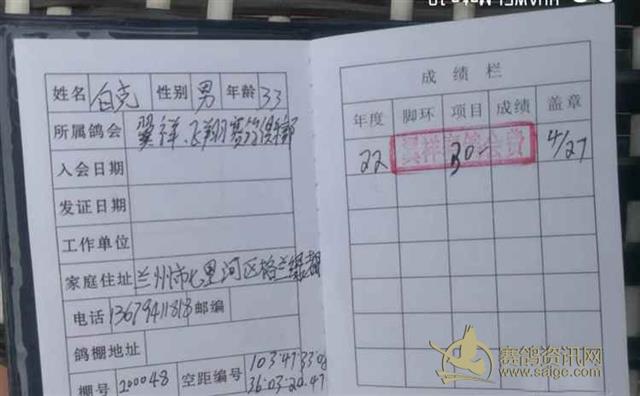 姓名 白克 性别 男 年龄 33
所属鸽会 翼祥、飞翔赛鸽俱乐部
入会日期
发证日期
工作单位
家庭住址 兰州市七里河区格兰绿都
电话 13679411818 邮编
鸽棚地址
棚号 200048 空距编号 103·47·33·08
36·03·20·47
成绩栏
年度 脚环 项目 成绩 盖章
22 翼祥 30- 会费 4/27
赛鸽资讯网
www.saigc.com